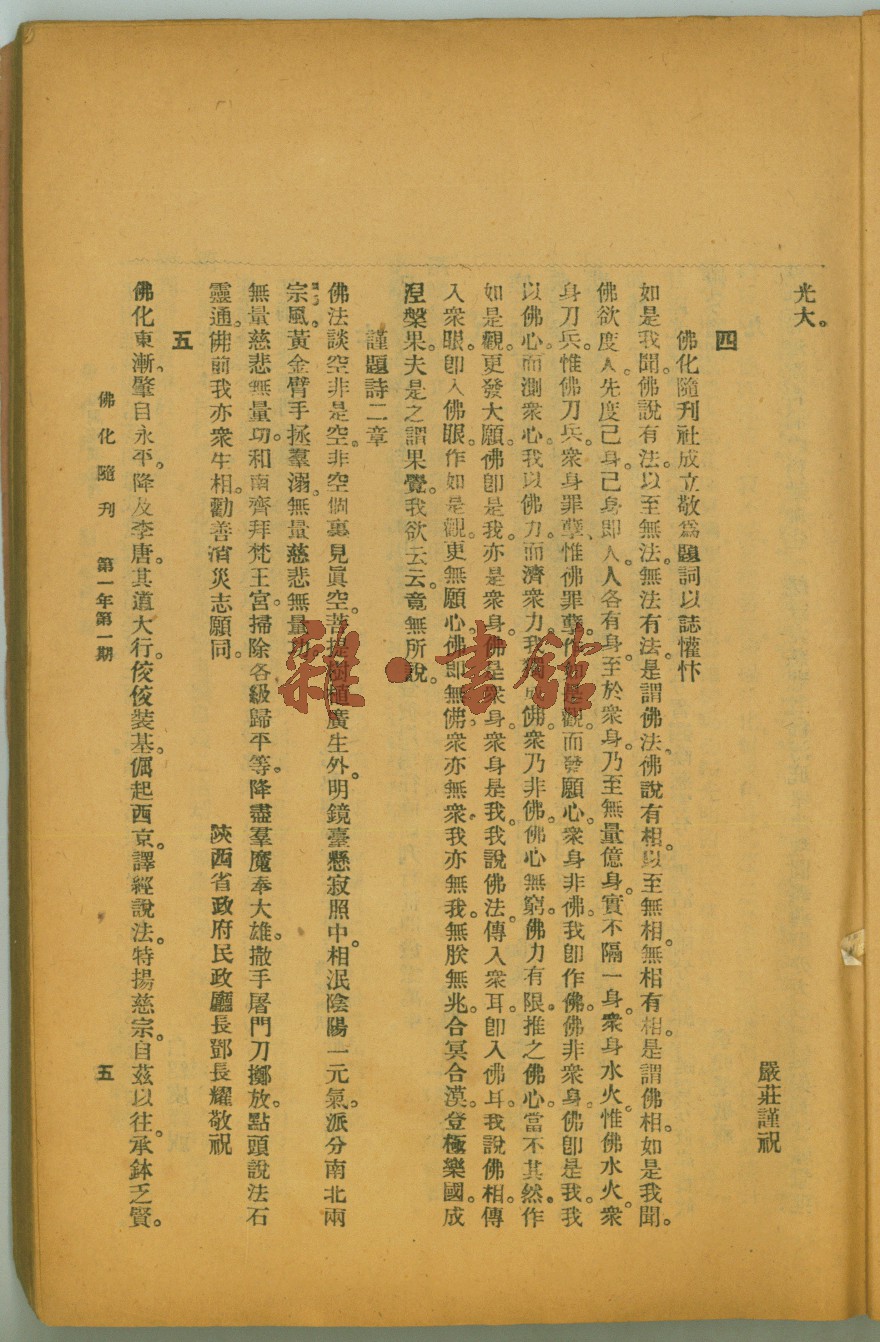 光大。
嚴莊謹祝
四
佛化隨刊社成立敬爲題詞以誌懽忭
如是我聞。佛說有法。以至無法。無法有法。是謂佛法。佛說有相。以至無相。無相有相。是謂佛相。如是我聞。
佛欲度人。先度己身。己身即人。人各有身。至於衆身。乃至無量億身。實不隔一身。衆身水火。惟佛水火。衆
身刀兵。惟佛刀兵。衆身罪孽、惟佛罪孽。作如是觀。而發願心。衆身非佛。我卽作佛。佛非衆身。佛卽是我。我
以佛心。而測衆心。我以佛力。而濟衆力。我獨成佛。衆乃非佛。佛心無窮。佛力有限。推之佛心。當不其然。作
如是觀。更發大願。佛卽是我。亦是衆身。佛是衆身。衆身是我。我說佛法。傳入衆耳。卽入佛耳。我說佛相。傳
入衆眼。卽入佛眼。作如是觀。更無願心。佛卽無佛。衆亦無衆。我亦無我。無朕無兆。合冥合漠。登極樂國。成
涅槃果。夫是之謂果覺。我欲云云。竟無所說。
謹題詩二章
佛法談空非是空。非空個裏見眞空。菩提樹植廣生外。明鏡臺懸寂照中。相泯陰陽一元氣。派分南北兩
宗風。黃金臂手拯羣溺。無量慈悲無量功。
無量慈悲無量功。和南齊拜梵王宮。掃除各級歸平等。降盡羣魔奉大雄。撒手屠門刀擲放。點頭說法石
靈通。佛前我亦衆生相。勸善消災志願同。
陝西省政府民政廳長鄧長耀敬祝
五
佛化東漸。肇自永平。降及李唐。其道大行。俊俊裝基。倜起西京。譯經說法。特揚慈宗。自茲以往。承鉢乏賢。
佛化隨刊 第一年第一期
五
雜·書館